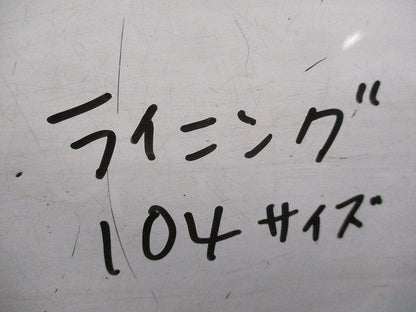 ライニング
104サイズ